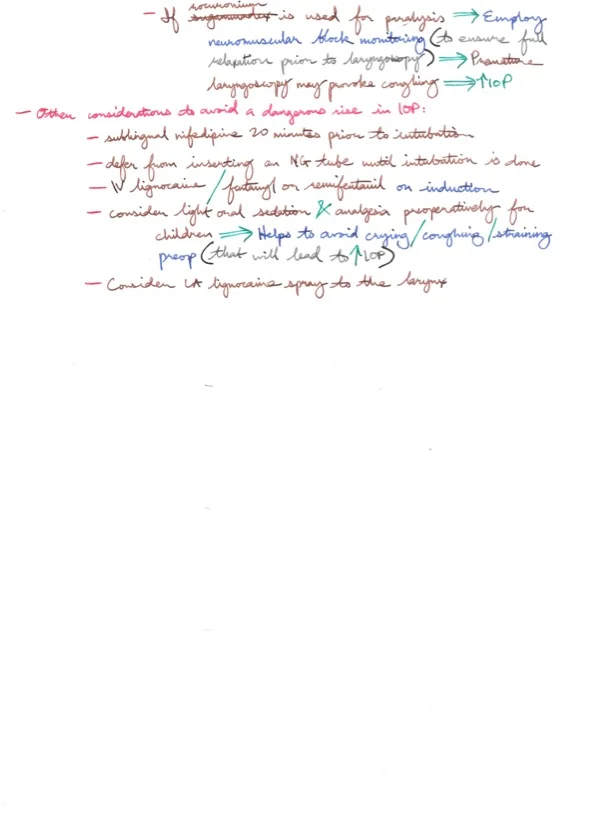 rocuronium
– If sugammadex is used for paralysis ⇒ Employ
neuromuscular block monitoring (to ensure full
relaxation prior to laryngoscopy) ⇒ Premature
laryngoscopy may provoke coughing ⇒ ↑IOP
– Other considerations to avoid a dangerous rise in IOP:
– sublingual nifedipine 20 minutes prior to intubation
– defer from inserting an NG tube until intubation is done
– IV lignocaine / fentanyl or remifentanil on induction
– consider light oral sedation & analgesia preoperatively for
children ⇒ Helps to avoid crying/coughing/straining
preop (that will lead to ↑IOP)
– Consider LA lignocaine spray to the larynx